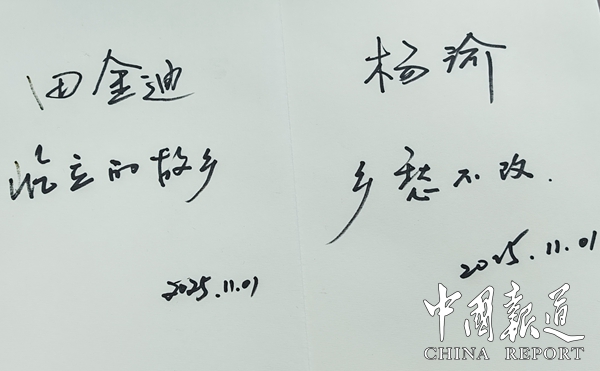 田金迪
伫立的故乡
2025.11.01
杨瑜
乡愁不改.
2025.11.01
中國報道
CHINA REPORT